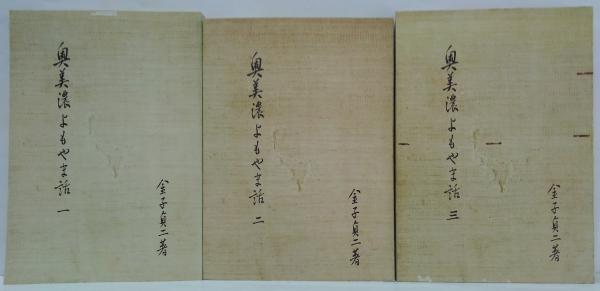 奥美濃よもやま話 一
金子貞二著
奥美濃よもやま話 二
金子貞二著
奥美濃よもやま話 三
金子貞二著